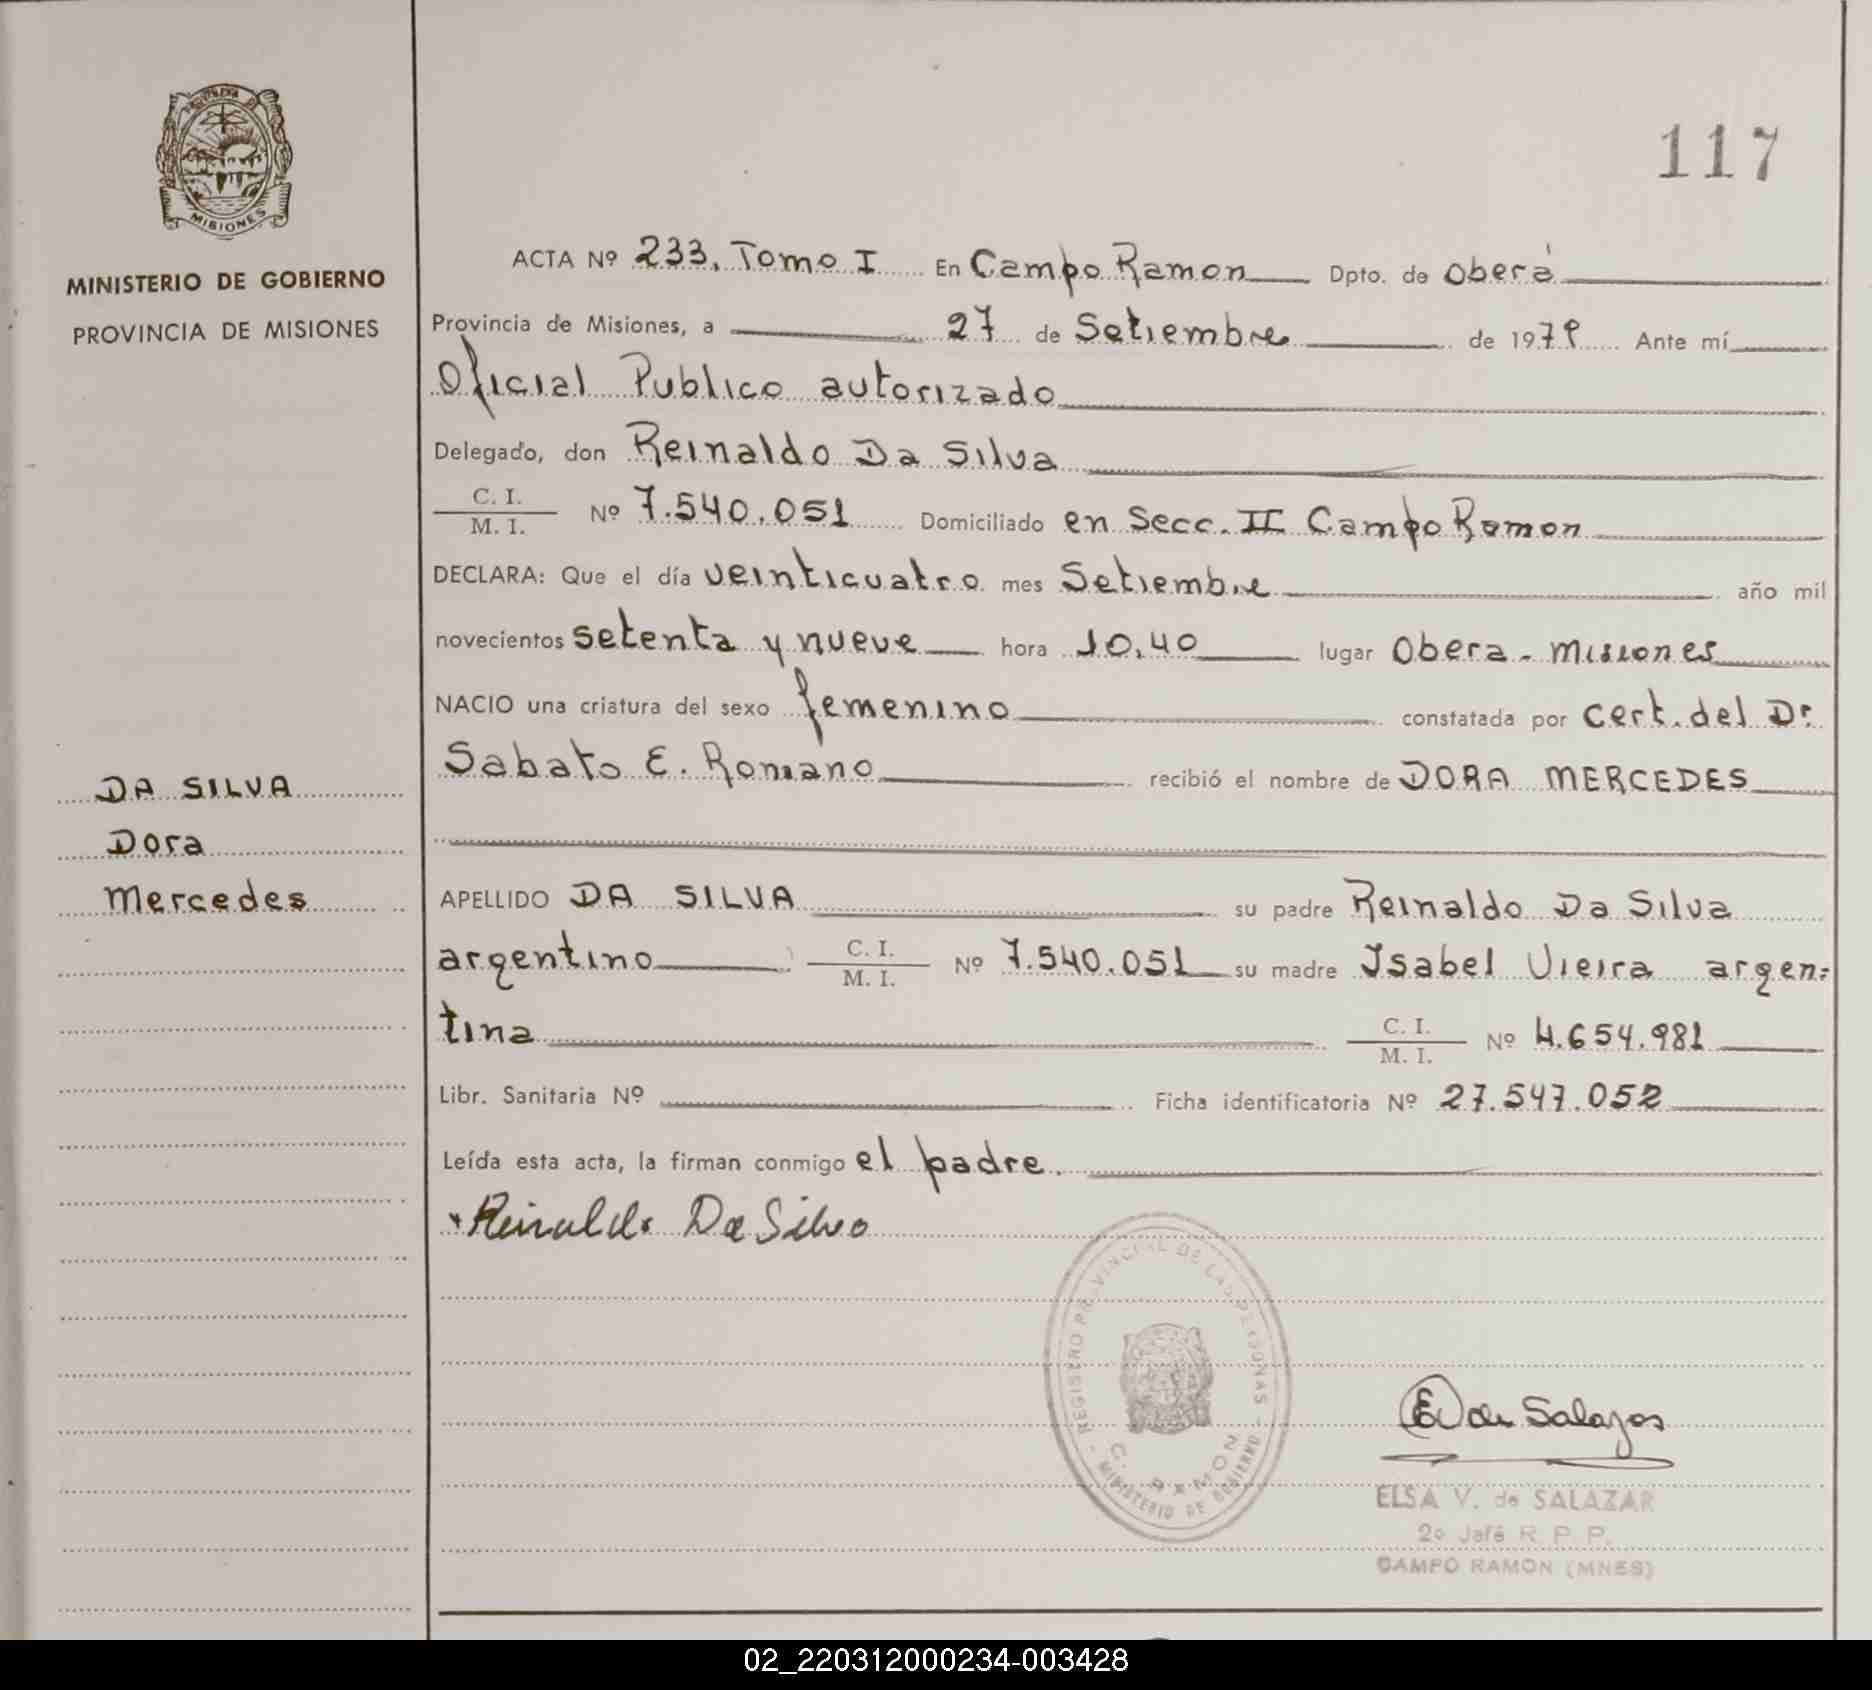 117
PROVINCIA DE
MISIONES
MINISTERIO DE GOBIERNO
PROVINCIA DE MISIONES
DA SILVA
Dora
Mercedes
ACTA Nº 233, Tomo I En Campo Ramon Dpto. de Oberá
Provincia de Misiones, a 27 de Setiembre de 1979 Ante mí
Oficial Publico autorizado
Delegado, don Reinaldo Da Silva
C. I.
M. I. Nº 7.540.051 Domiciliado en Secc. II Campo Ramon
DECLARA: Que el día veinticuatro mes Setiembre año mil
novecientos setenta y nueve hora 10,40 lugar Obera - Misiones
NACIO una criatura del sexo femenino constatada por cert. del Dr.
Sabato E. Romano recibió el nombre de DORA MERCEDES
APELLIDO DA SILVA su padre Reinaldo Da Silva
argentino C. I.
M. I. Nº 7.540.051 su madre Isabel Vieira argen-
tina C. I.
M. I. Nº 4.654.981
Libr. Sanitaria Nº Ficha identificatoria Nº 27.547.052
Leída esta acta, la firman conmigo el padre.
Reinaldo Da Silva
REGISTRO PROVINCIAL DE LAS PERSONAS
C. RAMON
MINISTERIO DE GOBIERNO
E V de Salazar
ELSA V. de SALAZAR
2º Jefe R. P. P.
CAMPO RAMON (MNES)
02_220312000234-003428